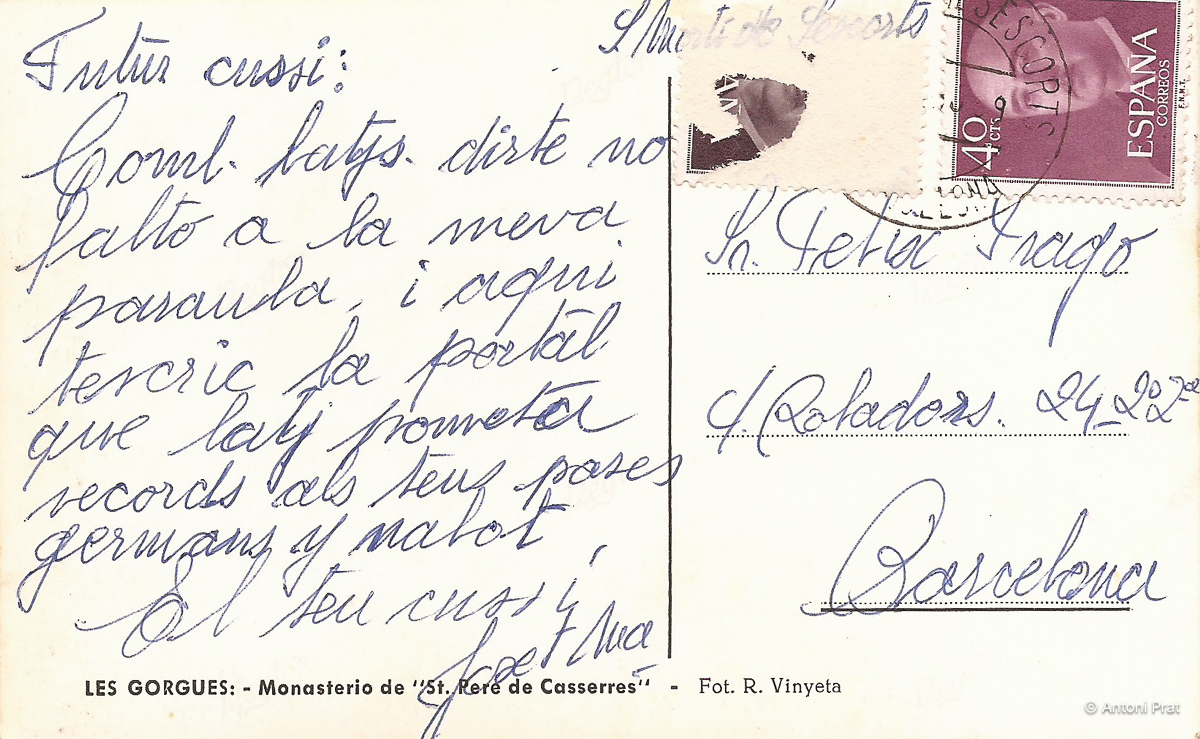 S. Martí de Sescorts
Futur cussi:
Coml. batjs. dirte no
falto a la meva
paraula, i aqui
tescric la portàl
que latj promesa
records als teus pares
germans y nabot,
El teu cussi,
Josep Mª
SESCORTS
40 CTS
ESPAÑA
CORREOS
F.N.M.T.
Sr. Felix Trago
c/. Robadors. 24-2º2ª
Barcelona
LES GORGUES: - Monasterio de "St. Pere de Casserres" - Fot. R. Vinyeta
© Antoni Prat